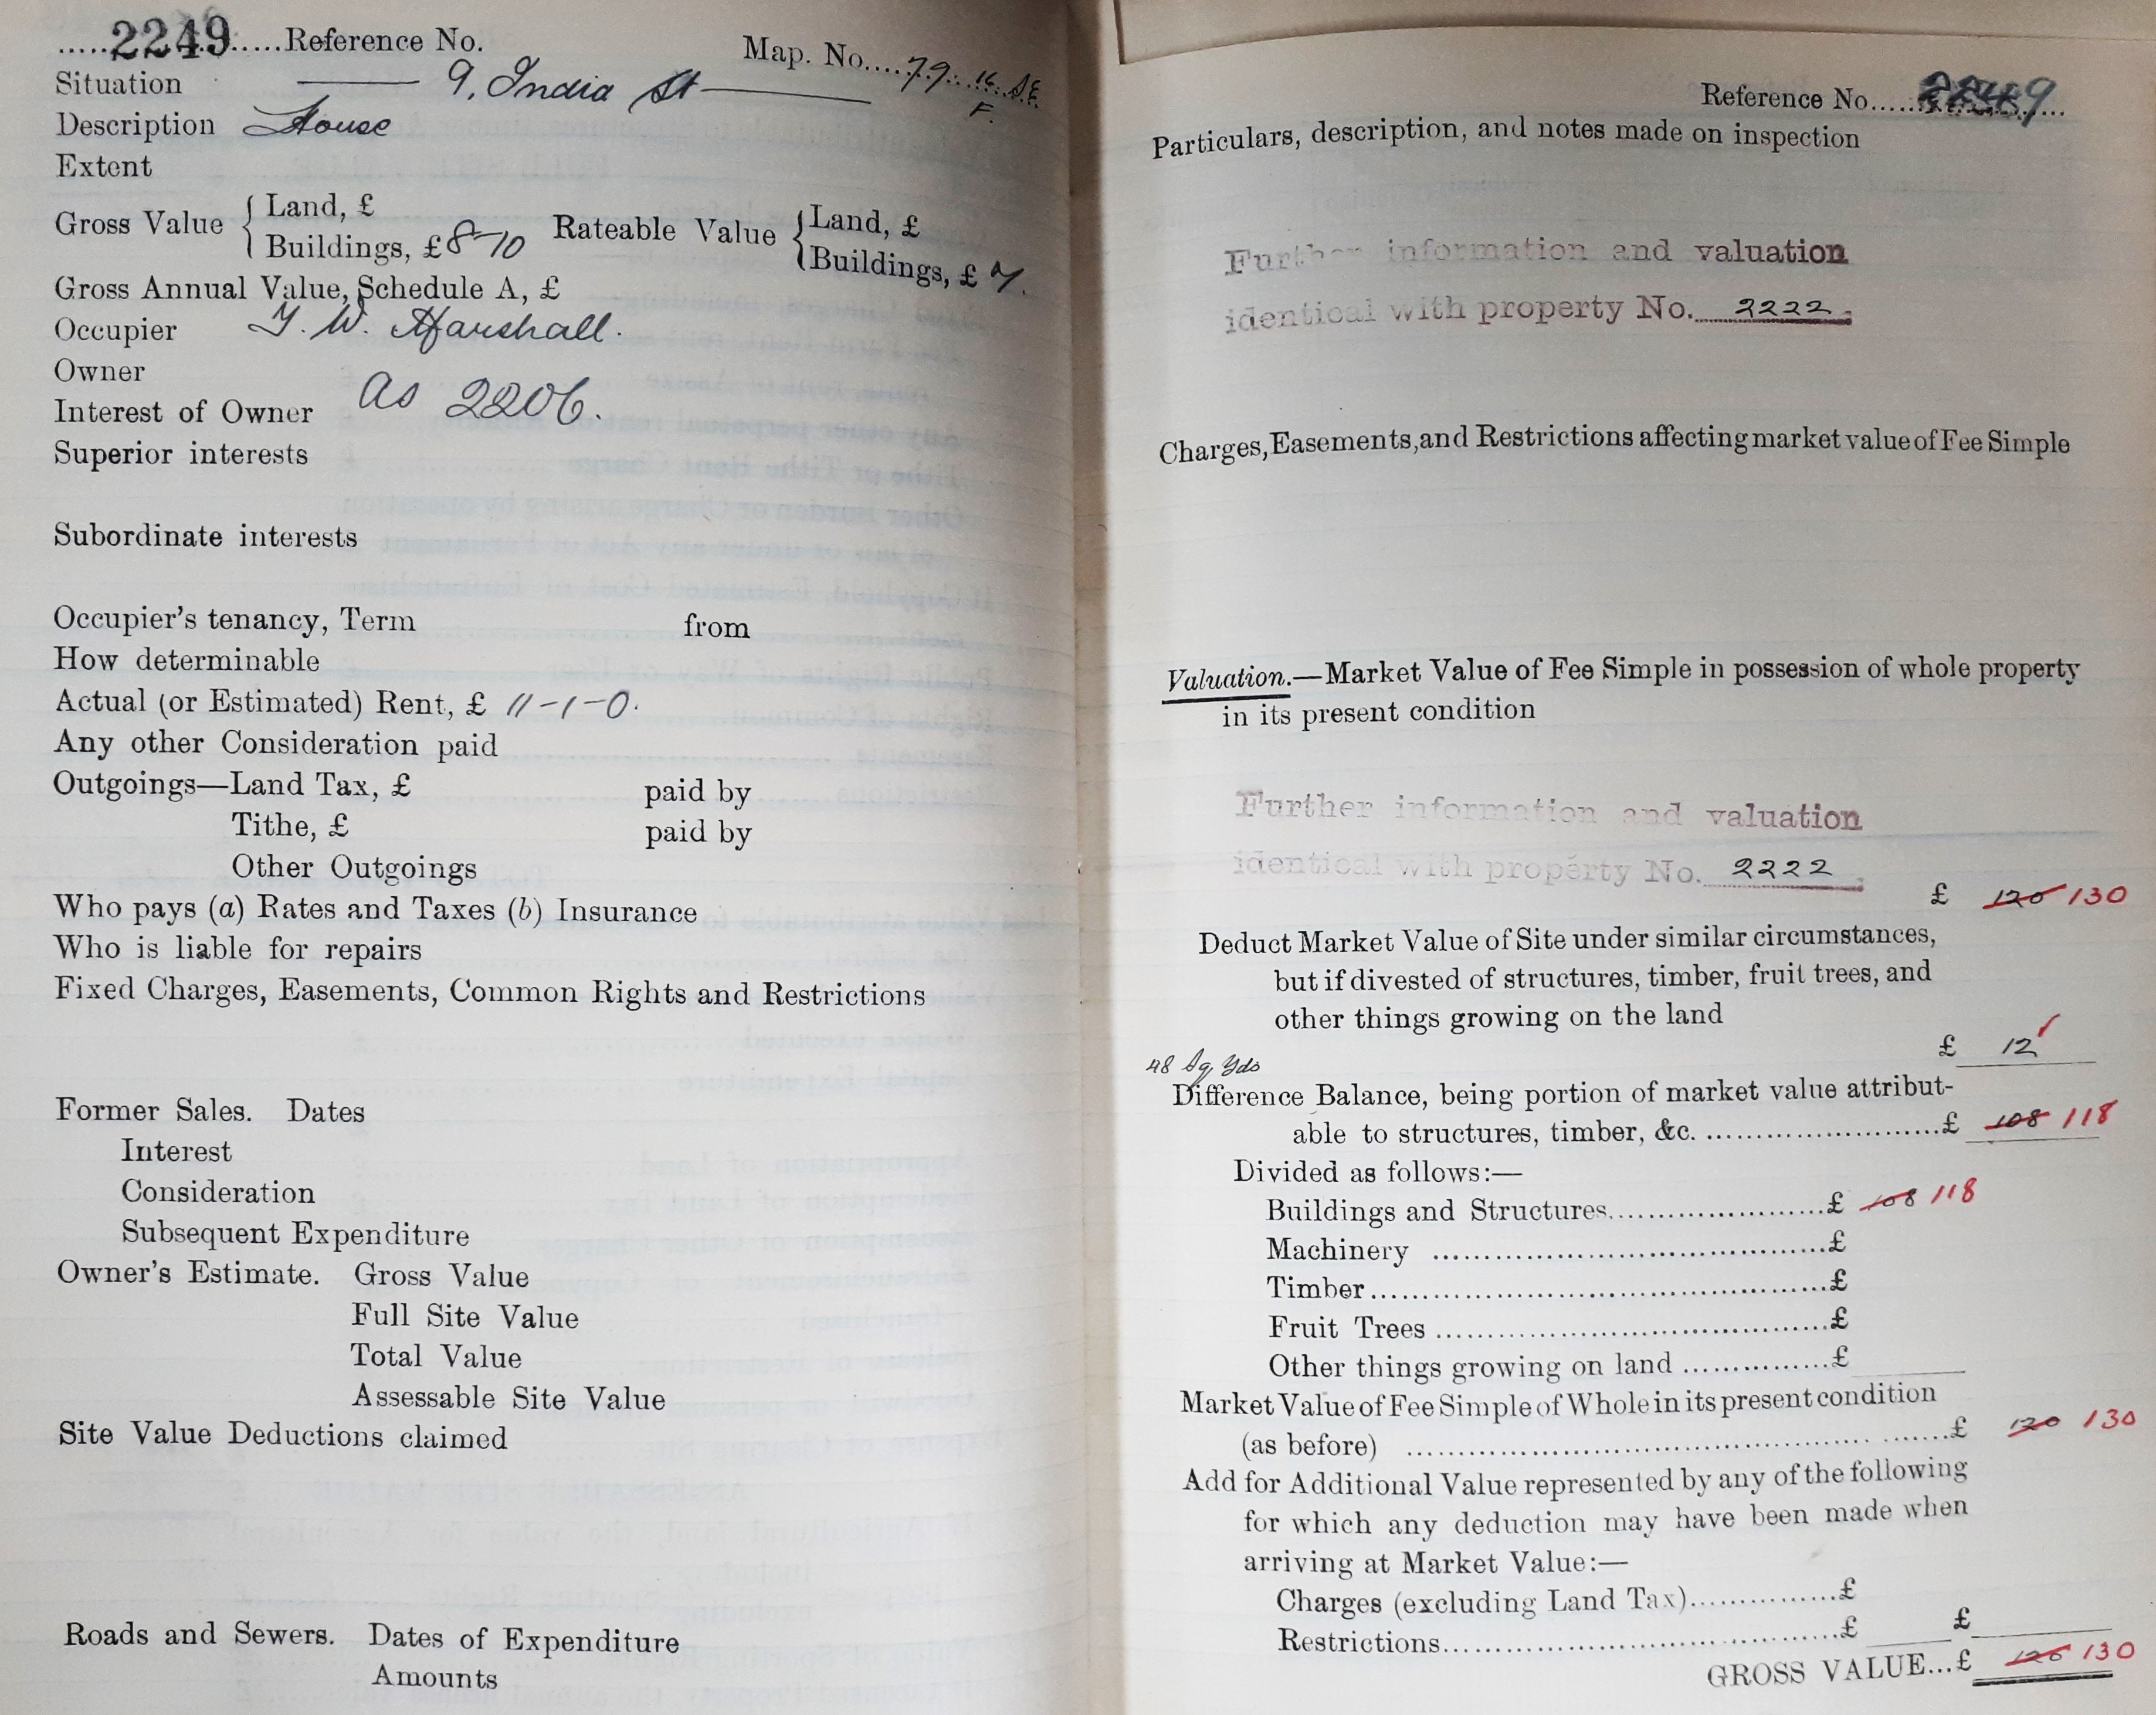 .....2249.....Reference No.
Map. No....79. 16. SE
F.
Situation 9, India St
Description House
Extent
Gross Value { Land, £
Buildings, £ 8-10
Rateable Value { Land, £
Buildings, £ 7.
Gross Annual Value, Schedule A, £
Occupier W. Marshall.
Owner
Interest of Owner as 2206.
Superior interests
Subordinate interests
Occupier's tenancy, Term from
How determinable
Actual (or Estimated) Rent, £ 11-1-0.
Any other Consideration paid
Outgoings—Land Tax, £ paid by
Tithe, £ paid by
Other Outgoings
Who pays (a) Rates and Taxes (b) Insurance
Who is liable for repairs
Fixed Charges, Easements, Common Rights and Restrictions
Former Sales. Dates
Interest
Consideration
Subsequent Expenditure
Owner's Estimate. Gross Value
Full Site Value
Total Value
Assessable Site Value
Site Value Deductions claimed
Roads and Sewers. Dates of Expenditure
Amounts
Reference No.....2249...
Particulars, description, and notes made on inspection
Further information and valuation
identical with property No. 2222.
Charges, Easements, and Restrictions affecting market value of Fee Simple
Valuation.—Market Value of Fee Simple in possession of whole property
in its present condition
Further information and valuation
identical with property No. 2222.
£ 120 130
Deduct Market Value of Site under similar circumstances,
but if divested of structures, timber, fruit trees, and
other things growing on the land
£ 12
48 Sq Yds
Difference Balance, being portion of market value attribut-
able to structures, timber, &c. ........................£ 108 118
Divided as follows:—
Buildings and Structures.......................£ 108 118
Machinery .........................................£
Timber................................................£
Fruit Trees .........................................£
Other things growing on land ...............£
Market Value of Fee Simple of Whole in its present condition
(as before) .......................................................£ 120 130
Add for Additional Value represented by any of the following
for which any deduction may have been made when
arriving at Market Value:—
Charges (excluding Land Tax)...............£
Restrictions..........................................£ £
GROSS VALUE...£ 120 130